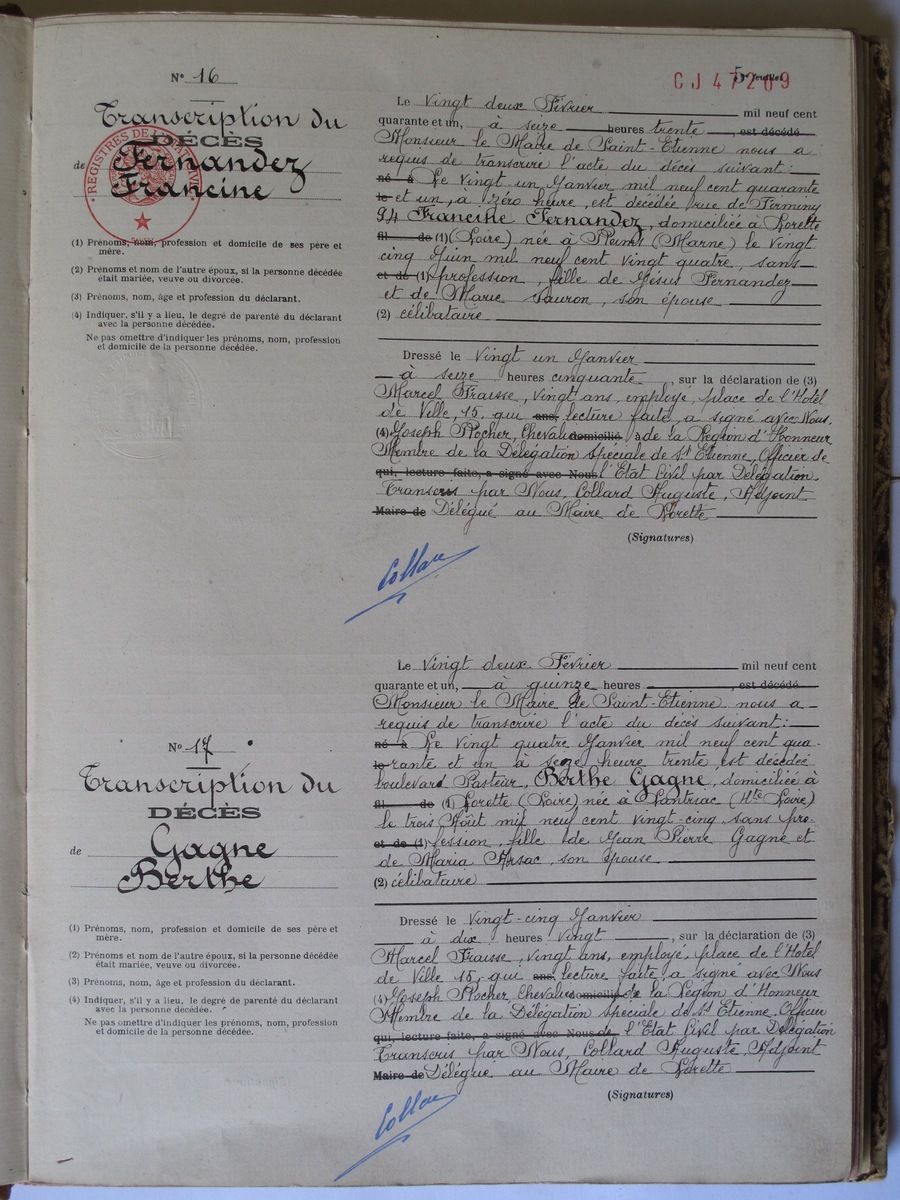 Nº 16
Transcription du
DÉCÈS
de Fernandez
Francine
REGISTRES DE L'ÉTAT CIVIL
(1) Prénoms, nom, profession et domicile de ses père et
mère.
(2) Prénoms et nom de l'autre époux, si la personne décédée
était mariée, veuve ou divorcée.
(3) Prénoms, nom, âge et profession du déclarant.
(4) Indiquer, s'il y a lieu, le degré de parenté du déclarant
avec la personne décédée.
Ne pas omettre d'indiquer les prénoms, nom, profession
et domicile de la personne décédée.
CJ 47209
5e feuillet
Le vingt deux Février mil neuf cent
quarante et un, à seize heures trente, est décédé
Monsieur le Maire de Saint-Etienne nous a
requis de transcrire l'acte du décès suivant :
né à Le vingt un Janvier mil neuf cent quarante
le et un, à zéro heure, est décédée rue de Firminy
94 Francine Fernandez, domiciliée à Lorette
fil de (1) (Loire) née à Reims (Marne) le vingt
cinq Juin mil neuf cent vingt quatre, sans
et de (1) profession, fille de Jésus Fernandez
et de Marie Sauron, son épouse
(2) célibataire
Dressé le vingt un Janvier
à seize heures cinquante, sur la déclaration de (3)
Marcel Fraisse, vingt ans, employé, place de l'Hotel
de Ville, 15, qui ans, lecture faite, a signé avec Nous,
(4) Joseph Rocher, Chevalier domicilié à de la Légion d'Honneur
Membre de la Délégation spéciale de St Etienne, Officier de
qui, lecture faite, a signé avec Nous l'Etat Civil par Délégation.
Transcris par Nous, Collard Auguste, Adjoint
Maire de Délégué au Maire de Lorette
(Signatures)
Collard
Nº 17
Transcription du
DÉCÈS
de Gagne
Berthe
(1) Prénoms, nom, profession et domicile de ses père et
mère.
(2) Prénoms et nom de l'autre époux, si la personne décédée
était mariée, veuve ou divorcée.
(3) Prénoms, nom, âge et profession du déclarant.
(4) Indiquer, s'il y a lieu, le degré de parenté du déclarant
avec la personne décédée.
Ne pas omettre d'indiquer les prénoms, nom, profession
et domicile de la personne décédée.
Le vingt deux Février mil neuf cent
quarante et un, à quinze heures, est décédé
Monsieur le Maire de Saint-Etienne nous a
requis de transcrire l'acte du décès suivant :
né à Le vingt quatre Janvier mil neuf cent qua-
le rante et un à seze heure trente est décédée
boulevard Pasteur, Berthe Gagne, domiciliée à
fil de (1) Lorette (Loire) née à Lantriac (Hte Loire)
le trois Août mil neuf cent vingt-cinq sans pro-
et de (1) fession, fille de Jean Pierre Gagne et
de Maria Arsac, son épouse
(2) célibataire
Dressé le vingt-cinq Janvier
à dix heures vingt, sur la déclaration de (3)
Marcel Fraisse, vingt ans, employé, place de l'Hotel
de Ville 15, qui ans, lecture faite, a signé avec Nous
(4) Joseph Rocher Chevalier domicilié de la Légion d'Honneur
Membre de la Délégation spéciale de St Etienne, Officier
qui, lecture faite, a signé avec Nous de l'Etat Civil par Délégation
Transcris par Nous, Collard Auguste, Adjoint
Maire de Délégué au Maire de Lorette
(Signatures)
Collard